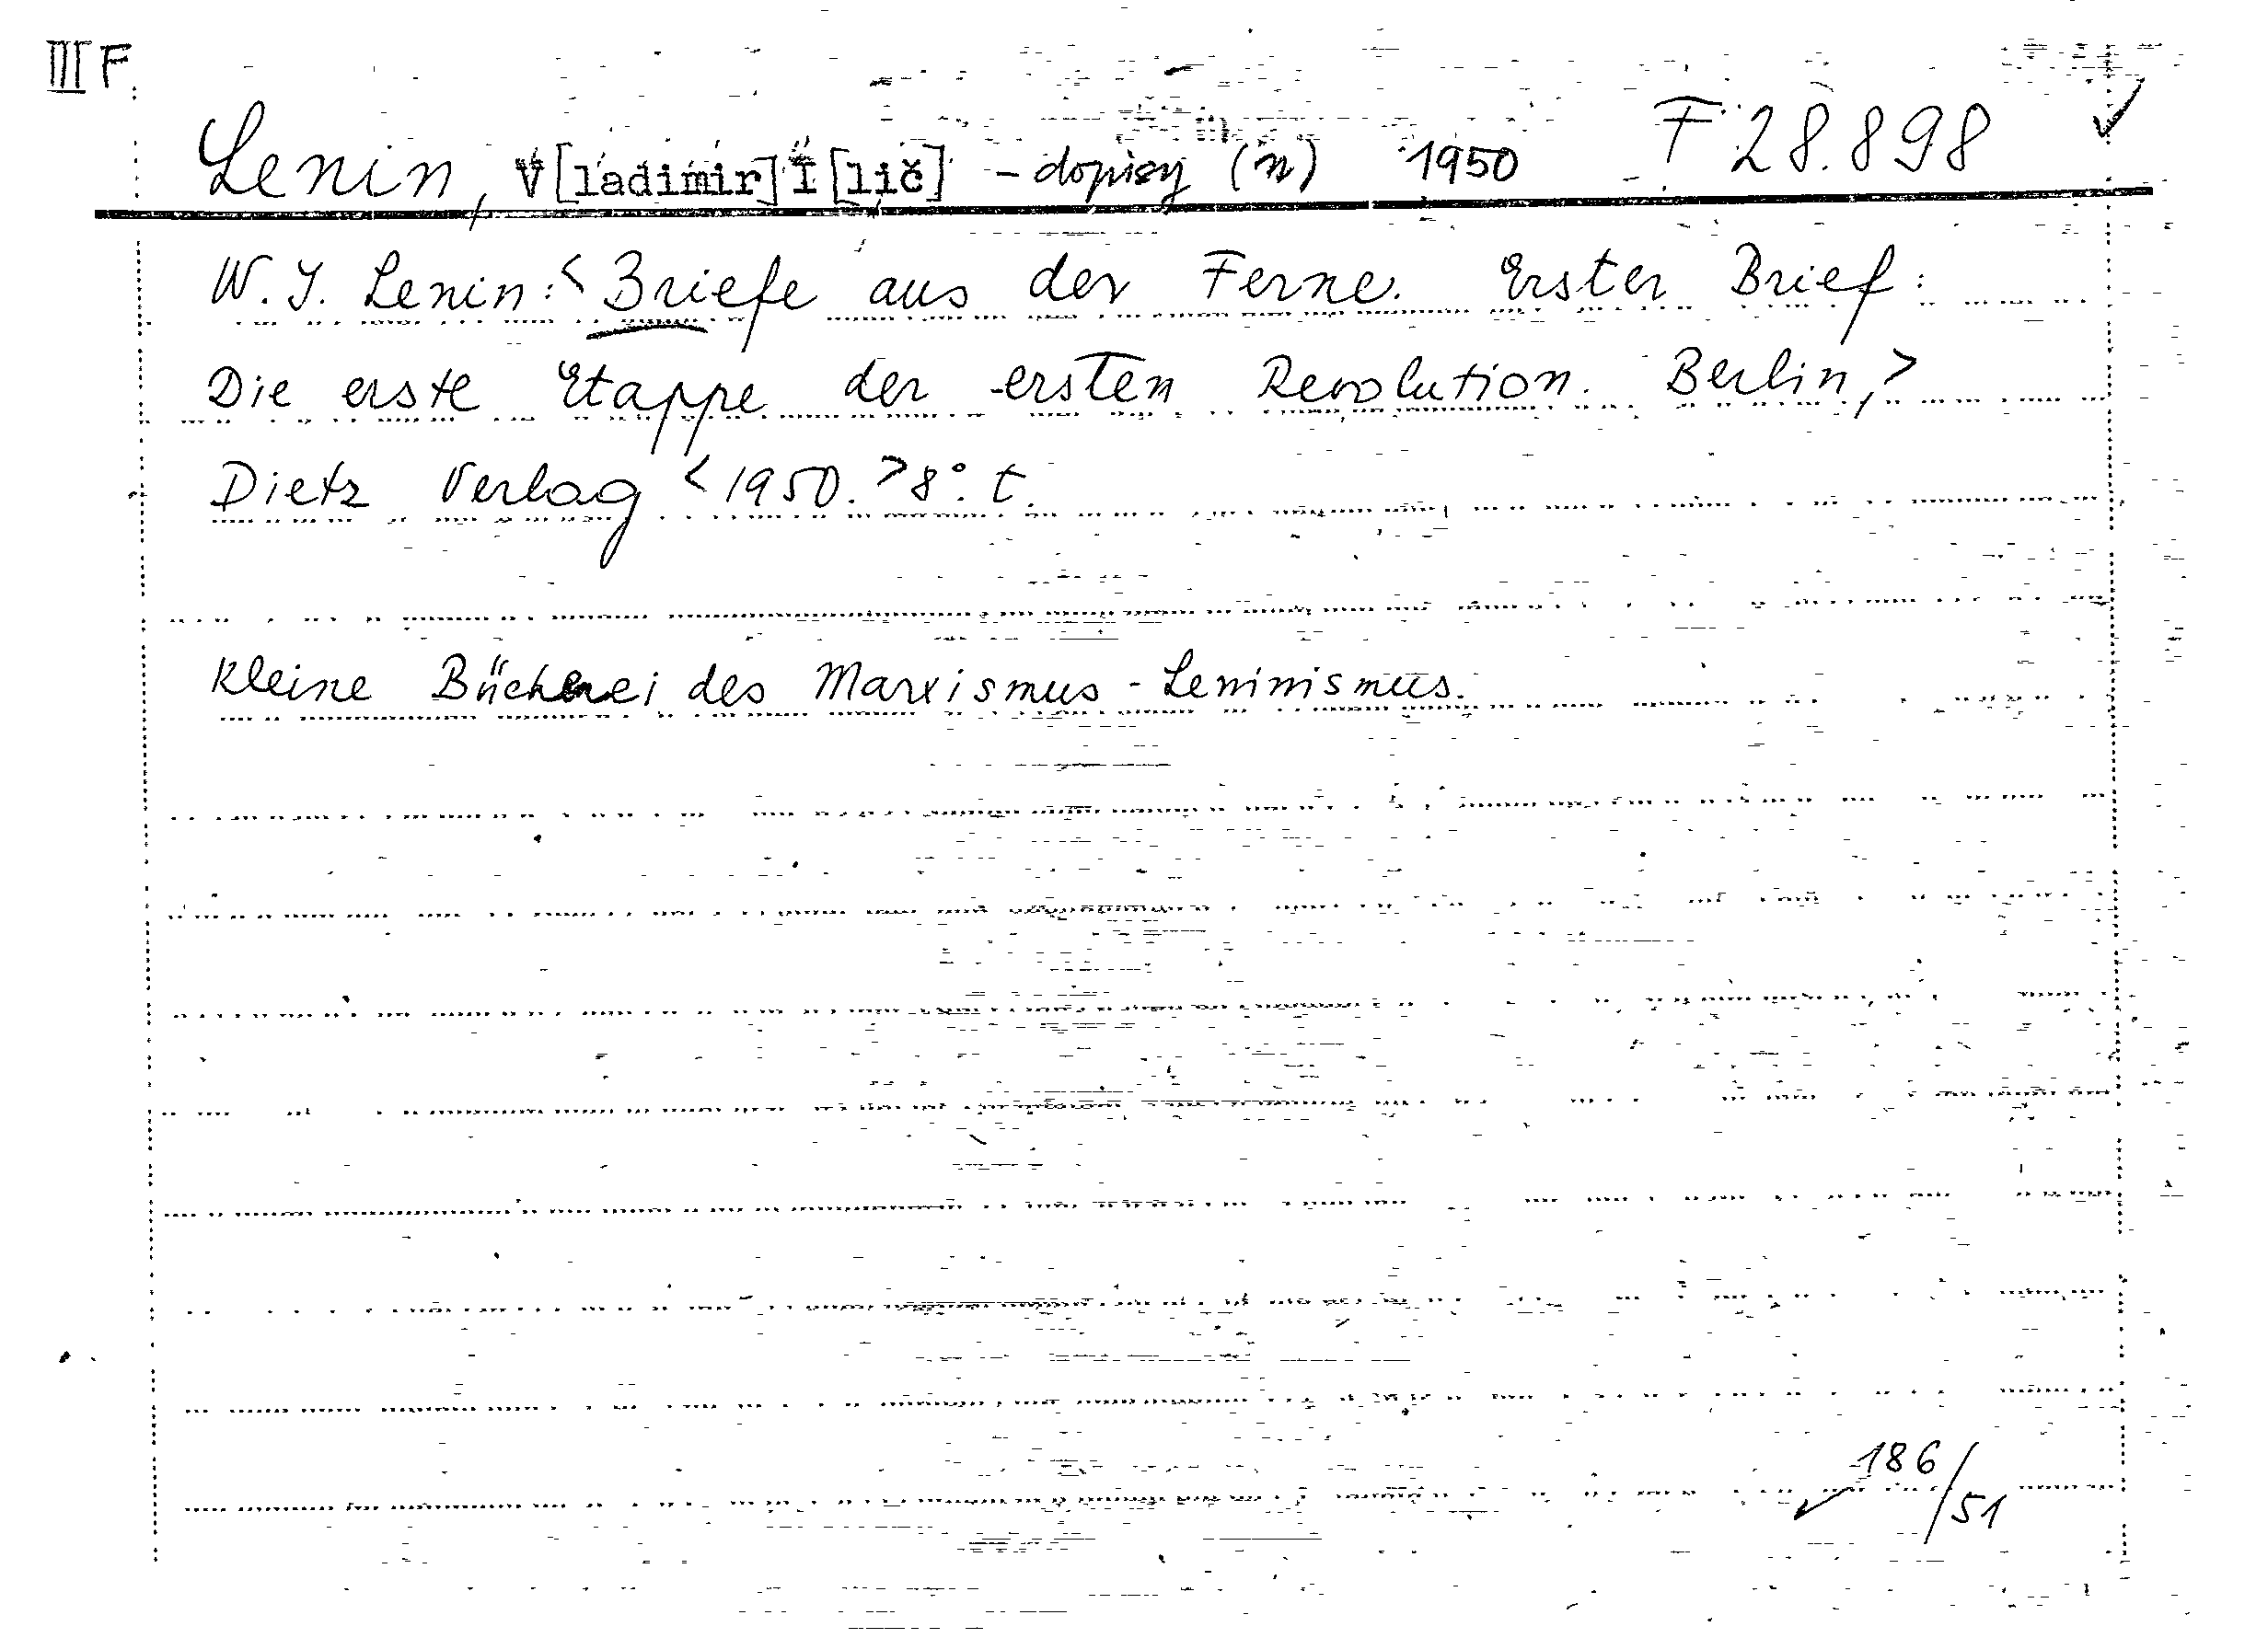 III F
Lenin, V[ladimir] I[lič] - dopisy (n) 1950 F 28.898
W. I. Lenin: <Briefe aus der Ferne. Erster Brief:
Die erste Etappe der ersten Revolution. Berlin,>
Dietz Verlag <1950.> 8°. t.
Kleine Bücherei des Marxismus-Leninismus.
186/51